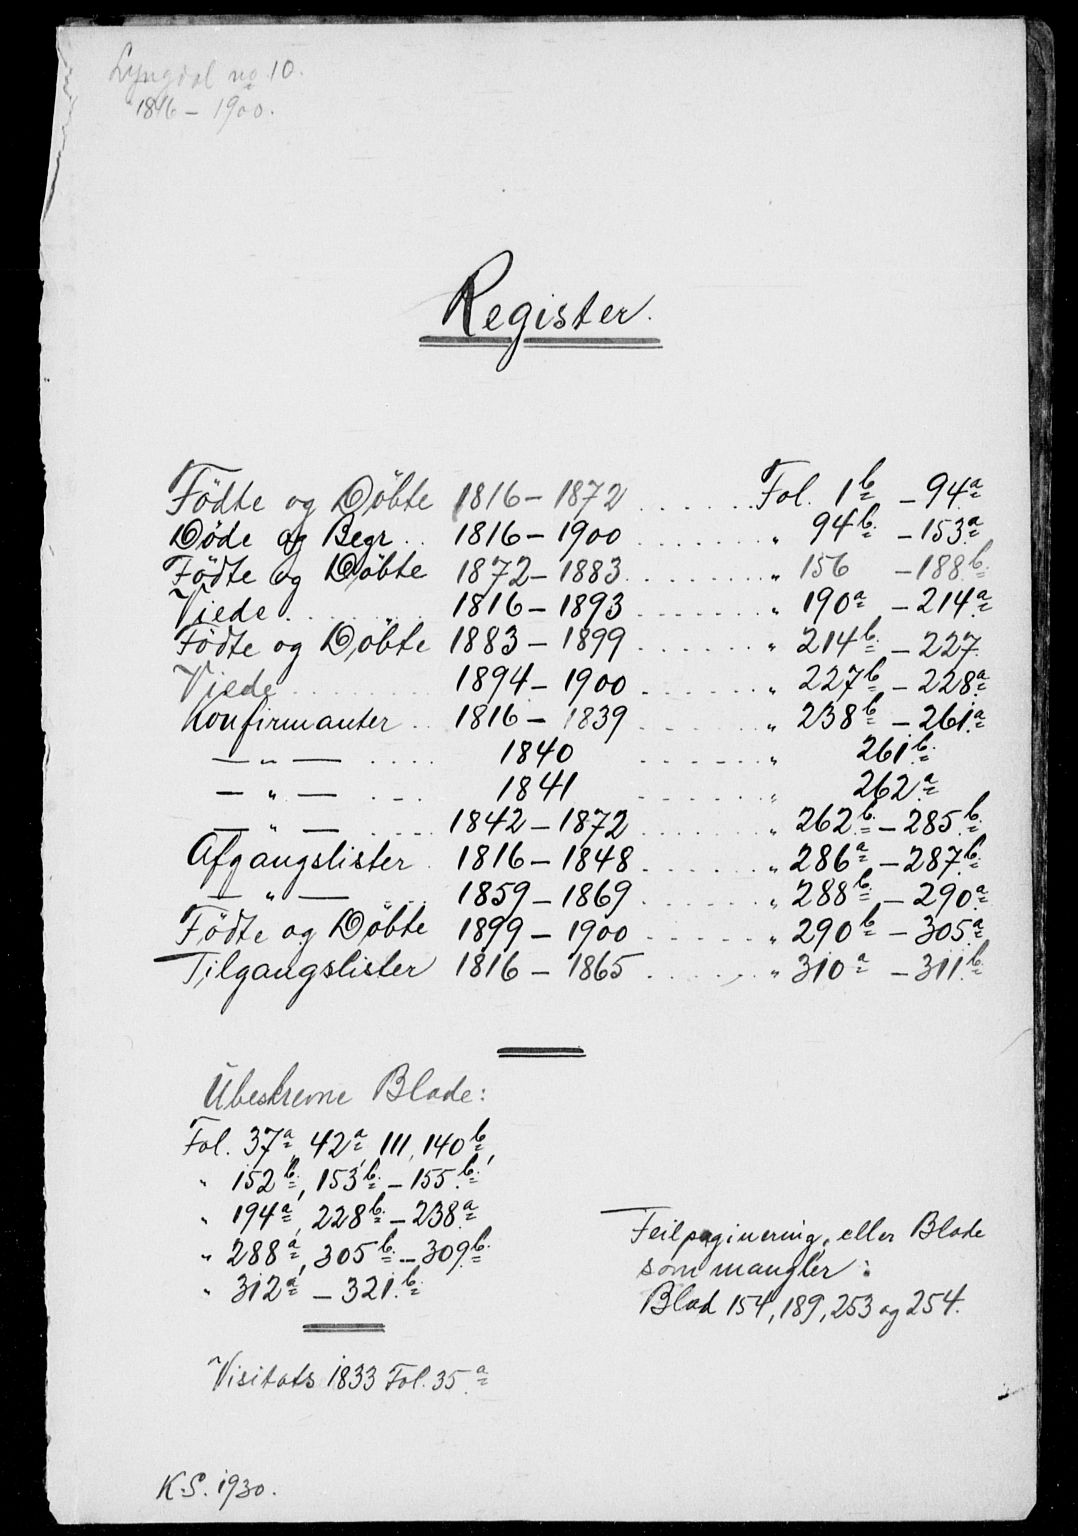 Lyngdal no 10.
1816 - 1900.
Register.
Födte og Döbte 1816 - 1872 ...... Fol. 1b - 94a
Döde og Begr .. 1816 - 1900 ....... " 94b - 153a
Födte og Döbte 1872 - 1883 ....... " 156 - 188b
Viede ........ 1816 - 1893 ....... " 190a - 214a
Födte og Döbte 1883 - 1899 ....... " 214b - 227
Viede ........ 1894 - 1900 ....... " 227b - 228a
Konfirmanter .. 1816 - 1839 ....... " 238b - 261a
— " — .... 1840 ....... " 261b
— " — .... 1841 ....... " 262a
— " — .... 1842 - 1872 ....... " 262b - 285b
Afgangslister . 1816 - 1848 ....... " 286a - 287b
— " — .... 1859 - 1869 ....... " 288b - 290a
Födte og Döbte 1899 - 1900 ....... " 290b - 305a
Tilgangslister 1816 - 1865 ....... " 310a - 311b
Ubeskrevne Blade:
Fol. 37a, 42a, 111, 140b,
" 152b, 153b - 155b
" 194a, 228b - 238a
" 288a, 305b - 309b
" 312a - 321b
Feilpaginering, eller Blade
som mangler:
Blad 154, 189, 253 og 254.
Visitats 1833 Fol. 35a
K.S. 1930.